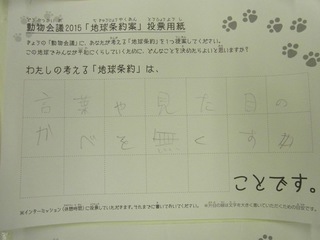 動物会議2015「地球条約案」投票用紙
きょうの「動物会議」に、あなたが考える「地球条約」を1つ提案してください。
この地球でみんなが平和にくらしていくために、どんなことを決めたらよいと思いますか？
わたしの考える「地球条約」は、
言葉や見た目の
かべを無くすわ
ことです。